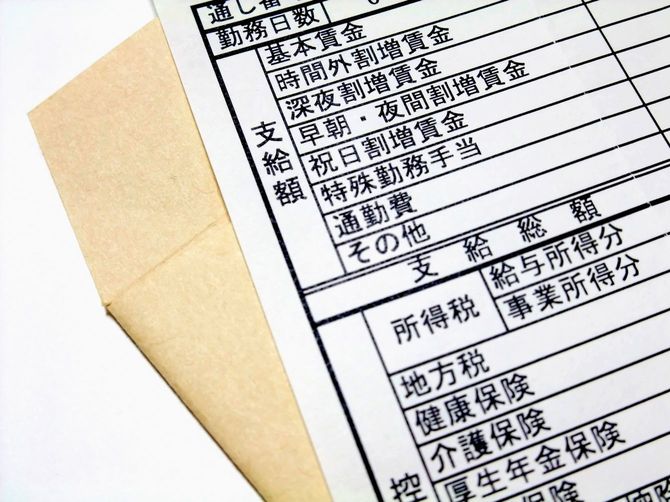 通し番
勤務日数
支給額
基本賃金
時間外割増賃金
深夜割増賃金
早朝・夜間割増賃金
祝日割増賃金
特殊勤務手当
通勤費
その他
支給総額
所得税
給与所得分
事業所得分
地方税
健康保険
介護保険
厚生年金保険
控